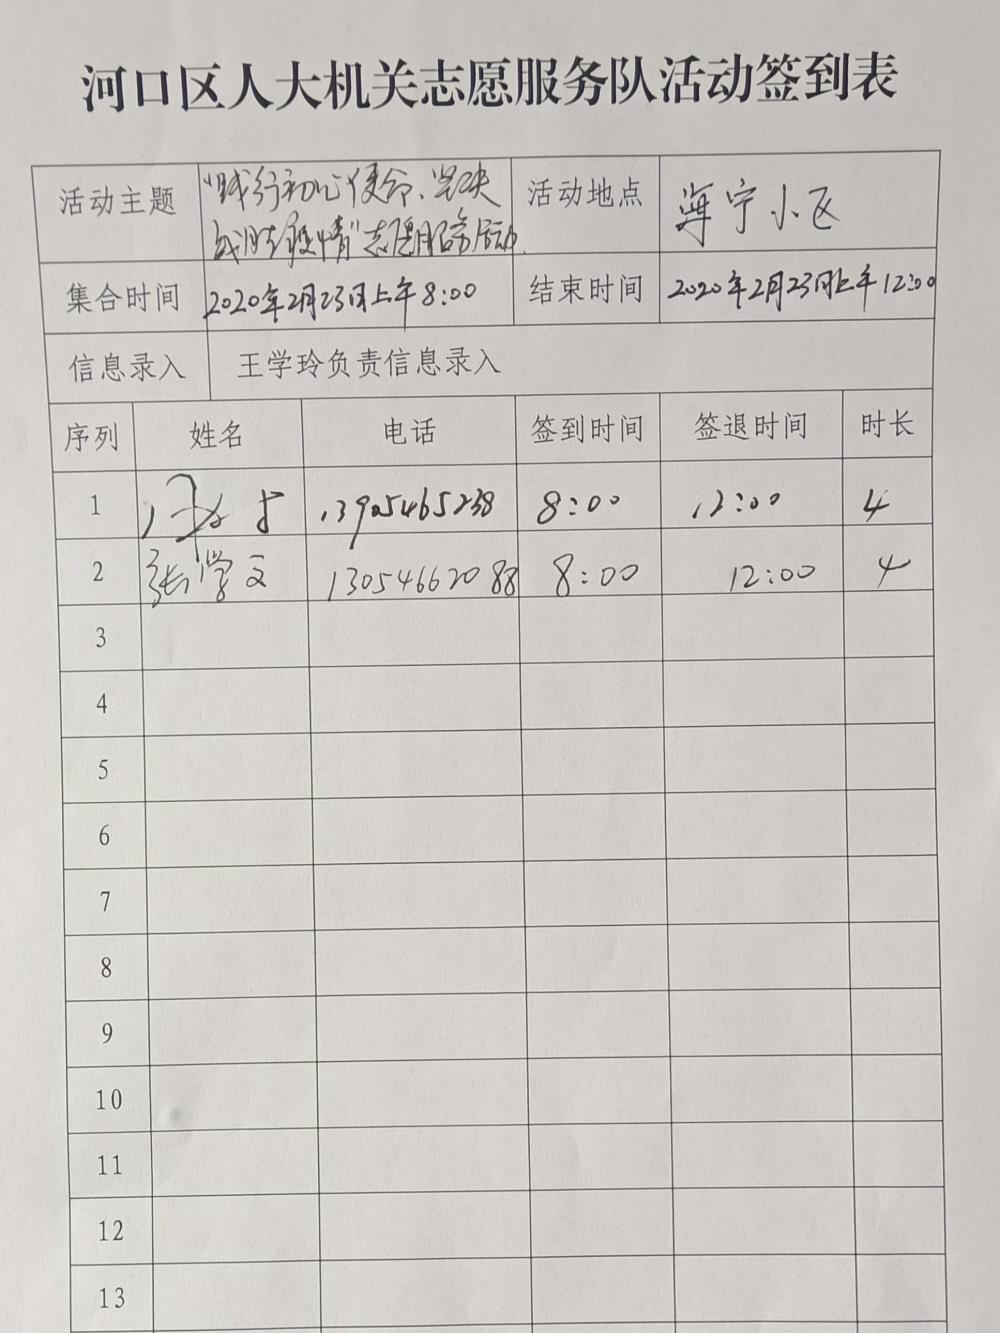 河口区人大机关志愿服务队活动签到表
活动主题 “践行初心使命、坚决战胜疫情”志愿服务活动 活动地点 海宁小区
集合时间 2020年2月23日上午8:00 结束时间 2020年2月23日上午12:00
信息录入 王学玲负责信息录入
序列 姓名 电话 签到时间 签退时间 时长
1 8:00 12:00 4
2 张学文 13054662088 8:00 12:00 4
3
4
5
6
7
8
9
10
11
12
13